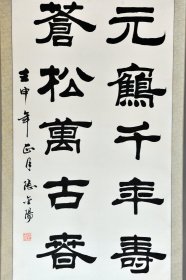 元鶴千年壽
蒼松萬古春
壬申年正月